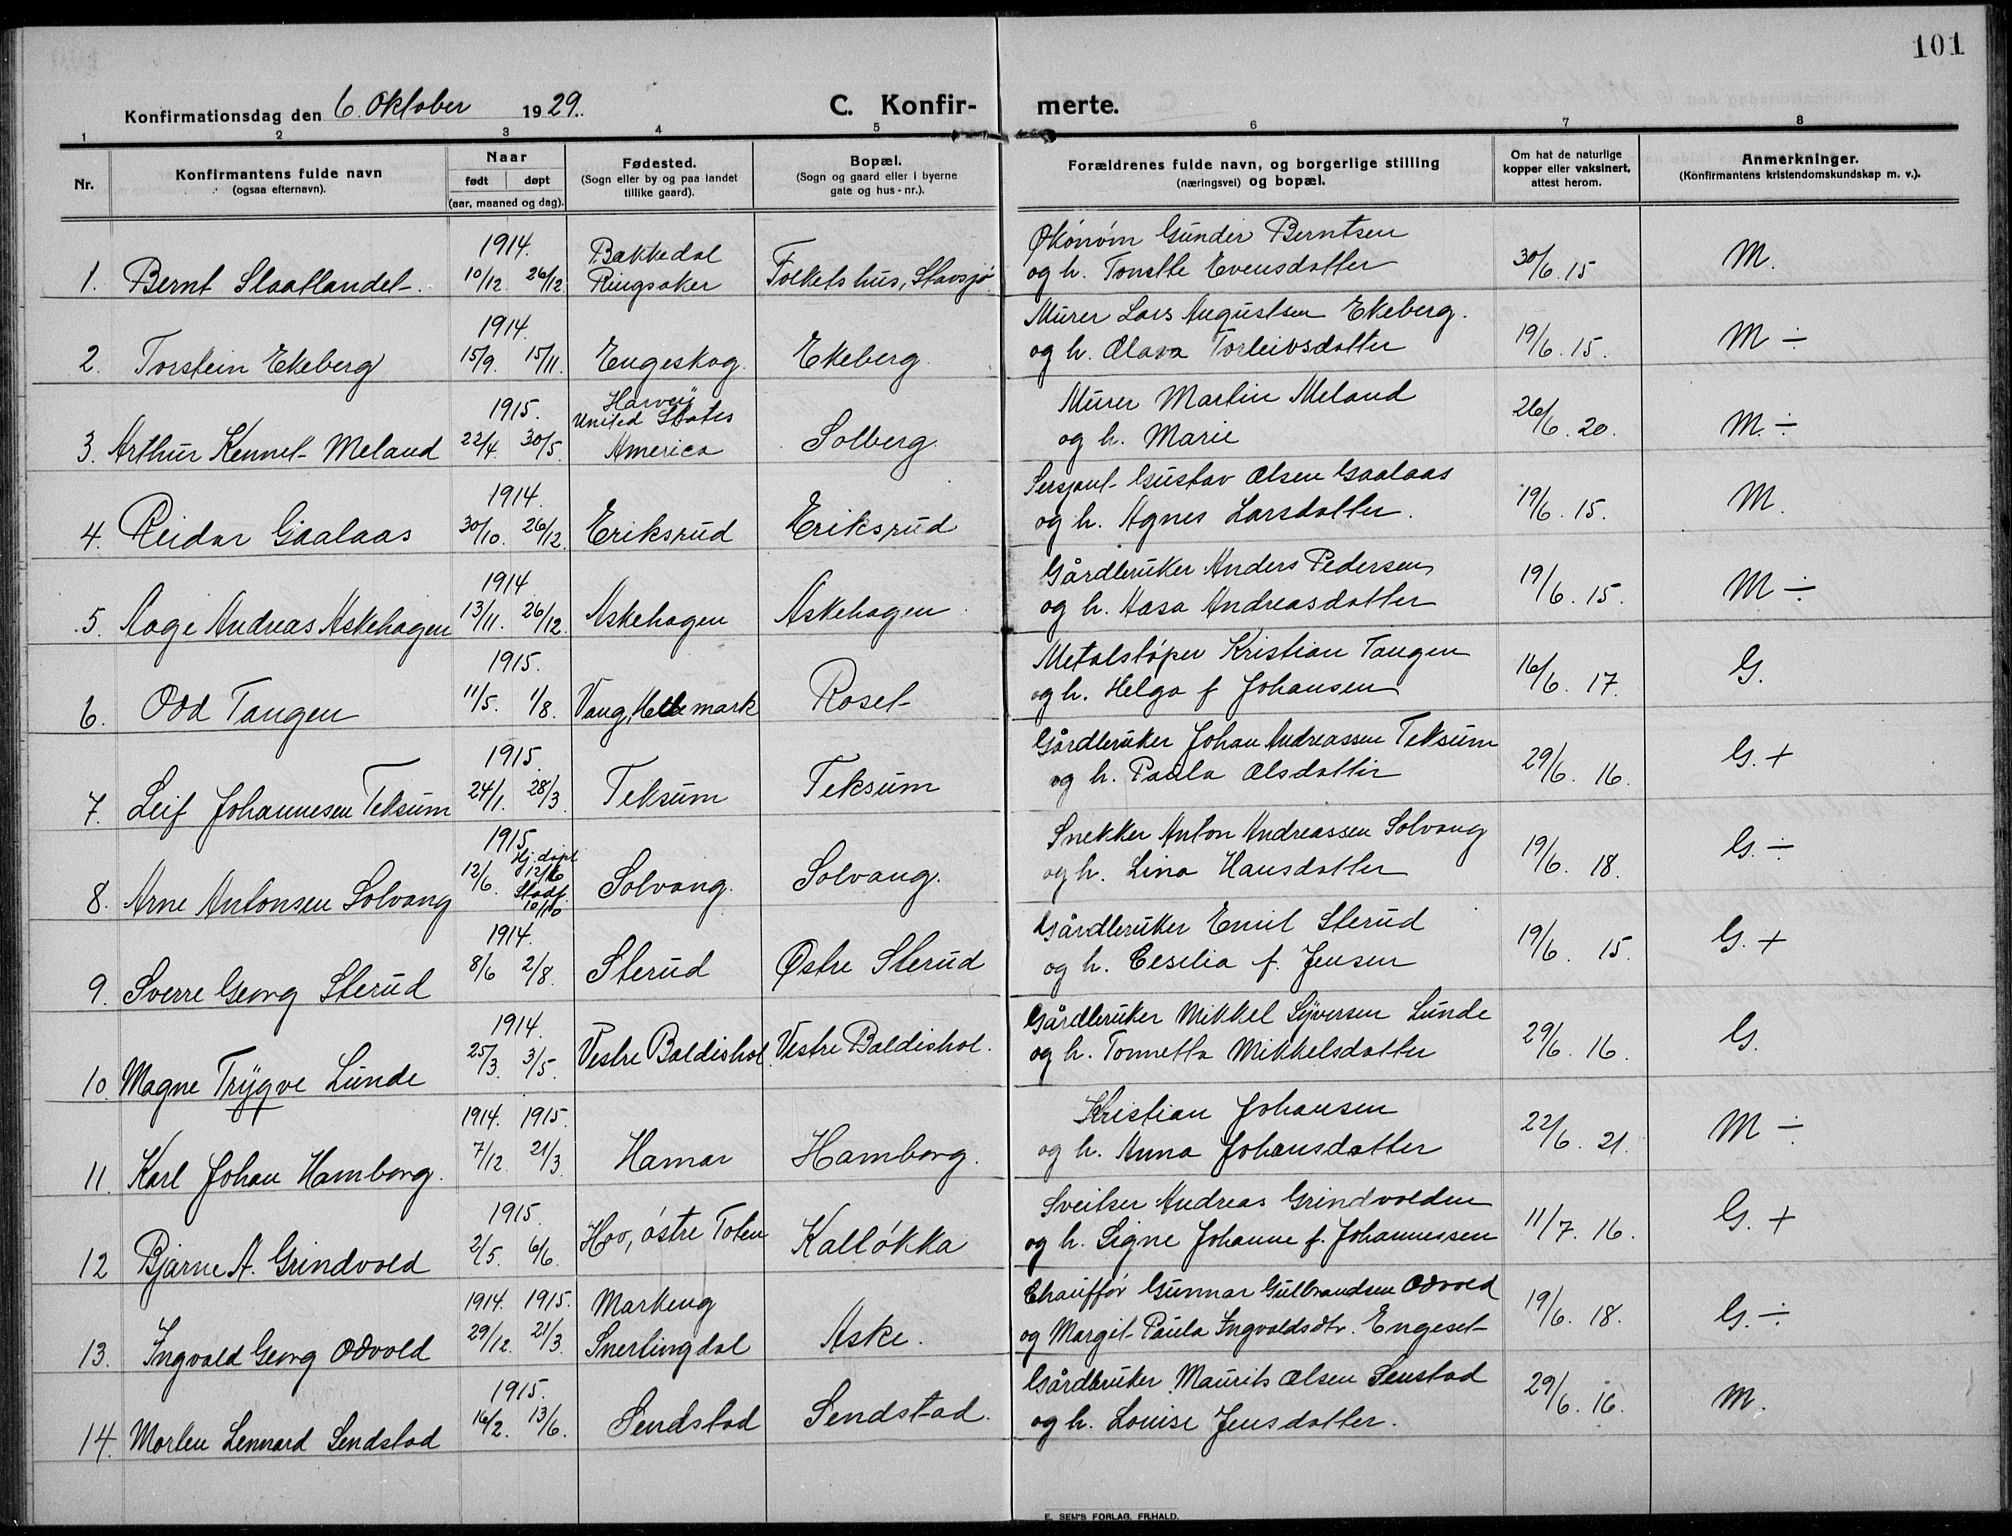 101
Konfirmationsdag den 6. Oktober 1929.
C. Konfir- merte.
1 2 3 4 5 6 7 8
Nr.
Konfirmantens fulde navn
(ogsaa efternavn).
Naar
født døpt
(aar, maaned og dag).
Fødested.
(Sogn eller by og paa landet
tillike gaard).
Bopæl.
(Sogn og gaard eller i byerne
gate og hus-nr.).
Forældrenes fulde navn, og borgerlige stilling
(næringsvei) og bopæl.
Om hat de naturlige
kopper eller vaksinert,
attest herom.
Anmerkninger.
(Konfirmantens kristendomskundskap m. v.).
1914. Bakkedal Økonóm Gunder Berntsen
1. Bernt Slaatlandet. 10/12. 26/12 Ringsaker Folkets hus, Stavsjø og h. Tonette Evensdatter 30/6 15 M.
1914. Murer Lars Augustsen Ekeberg.
2. Torstein Ekeberg 15/9. 15/11. Engeskog. Ekeberg. og h. Olava Torleivsdatter 19/6. 15. M ÷
1915. Harvey United States Murer Martin Meland
3. Arthur Kennet Meland 22/4. 30/5. America Solberg. og h. Marie 26/6. 20. M. ÷
1914. Sersjant Gustav Olsen Gaalaas
4. Reidar Gaalaas 30/10. 26/12. Eriksrud Eriksrud og h. Agnes Larsdatter. 19/6. 15. M.
1914 Gårdbruker Anders Pedersen
5. Aage Andreas Askehagen 13/11. 26/12. Askehagen Askehagen og h. Aasa Andreasdatter 19/6. 15. M ÷
1915. Metalstøper Kristian Tangen
6. Odd Tangen 11/5. 1/8. Vang, Hedemark Roset og h. Helga f Johansen 16/6. 17. G.
1915. Gårdbruker Johan Andreassen Teksum
7. Leif Johannesen Teksum 24/1. 28/3. Teksum Teksum og h. Paula Olsdatter 29/6. 16. G. +
1915. Hj. døpt Snekker Anton Andreassen Solvang
8. Arne Antonsen Solvang 12/6. 12/6 Stadf. 10/10 Solvang. Solvang. og h. Lina Hansdatter 19/6. 18. G. ÷
1914. Gårdbruker Emil Sterud
9. Sverre Georg Sterud 8/6 2/8. Sterud Østre Sterud og h. Cesilia f. Jensen 19/6. 15. G. +
1914. Gårdbruker Mikkel Syversen Lunde
10. Magne Trygve Lunde 25/3. 3/5. Vestre Baldishol Vestre Baldishol. og h. Tonnetta Mikkelsdatter 29/6. 16. G.
1914. 1915. Kristian Johansen
11. Karl Johan Hamborg. 7/12. 21/3. Hamar Hamborg. og h. Anna Johansdatter 22/6. 21. M ÷
1915. Sveitser Andreas Grindvolden
12 Bjarne A. Grindvold 2/5. 6/6. Hov, østre Toten Kalløkka og h. Signe Johanne f. Johannessen 11/7. 16. G. +
1914. 1915. Markeng Chauffør Gunnar Gulbrandsen Odvold
13. Ingvald Georg Odvold 29/12. 21/3. Snerlingdal Aske. og Margit Paula Ingvaldsdtr. Engeset 19/6. 18. G. ÷
1915. Gårdbruker Maurits Olsen Senstad
14. Morten Lennard Sendstad 16/2. 13/6. Sendstad Sendstad. og h. Louise Jensdatter. 29/6. 16. M.
E. SEM'S FORLAG, FR.HALD.